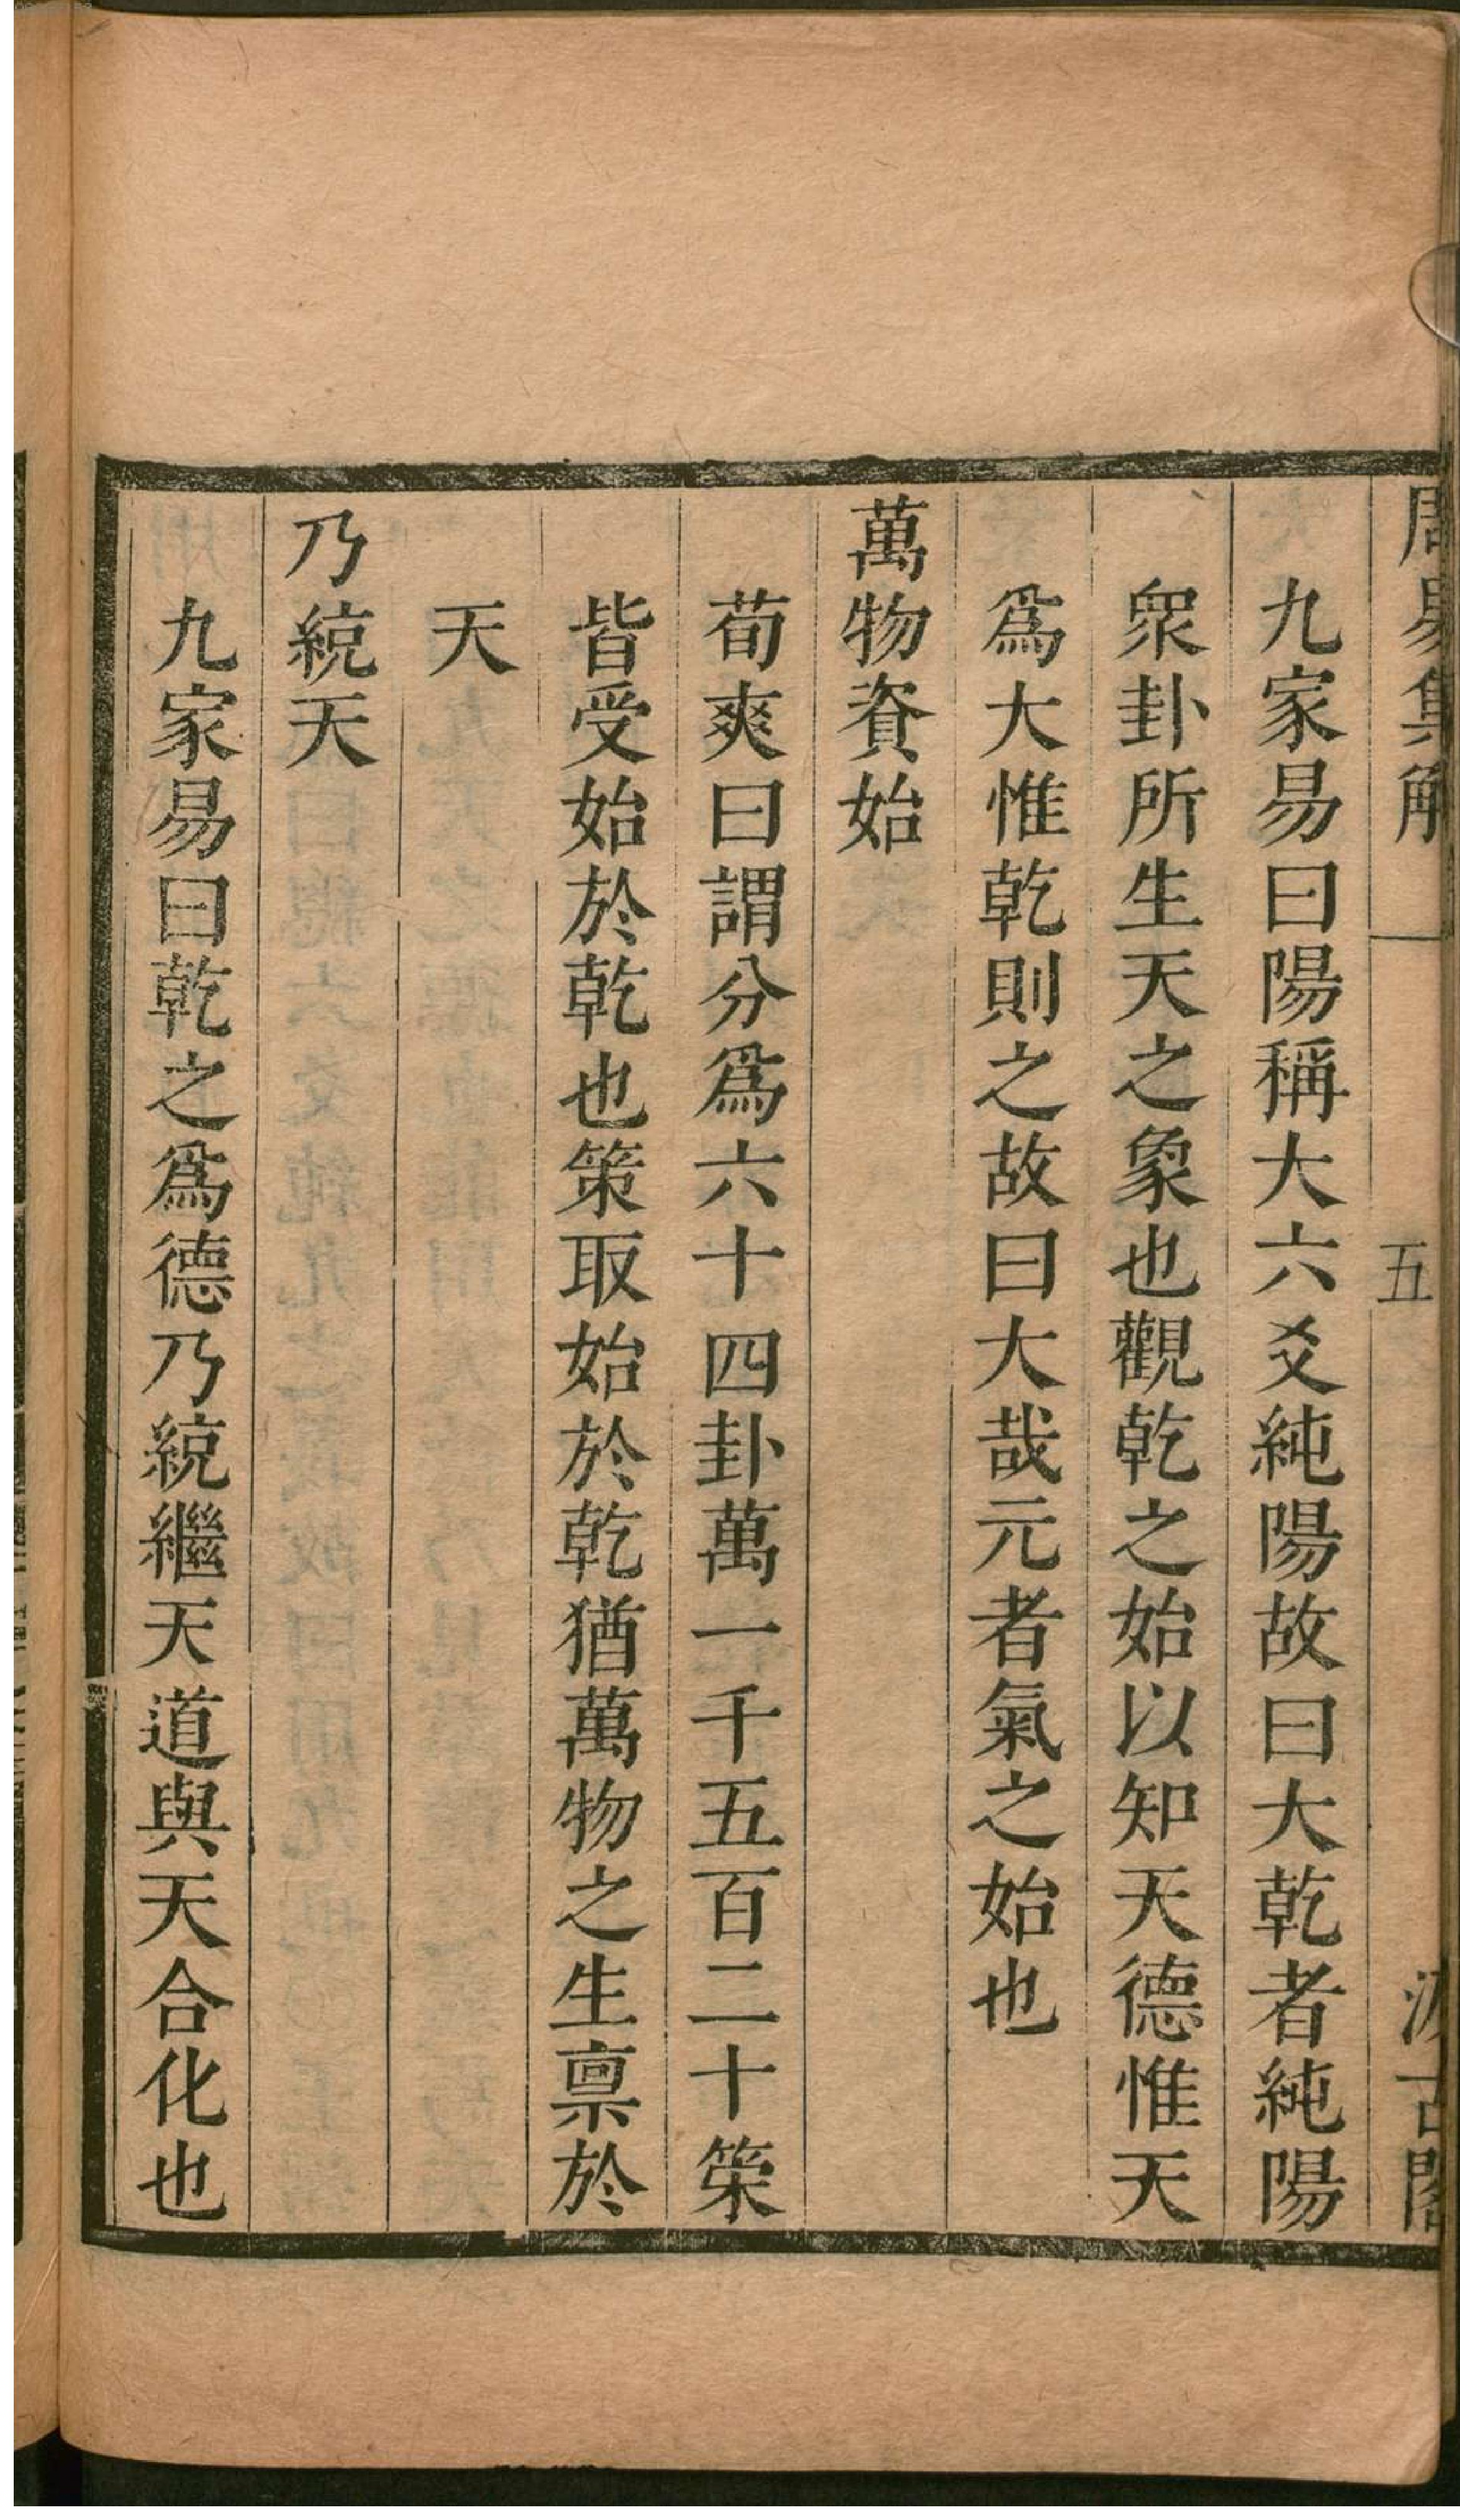 周易集解 五 汲古閣
九家易曰陽稱大六爻純陽故曰大乾者純陽
衆卦所生天之象也觀乾之始以知天德惟天
爲大惟乾則之故曰大哉元者氣之始也
萬物資始
荀爽曰謂分爲六十四卦萬一千五百二十筞
皆受始於乾也策取始於乾猶萬物之生禀於
天
乃統天
九家易曰乾之爲德乃統繼天道與天合化也